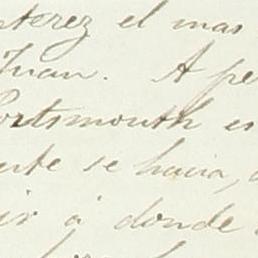 nterez el mas
Juan. A pe
Portsmouth es
ente se hacia,
ir á donde